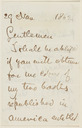 29 Nov. 186
Gentlemen
I shall be obliged
if you will obtain
for me copies of
my two books
republished in
America with the